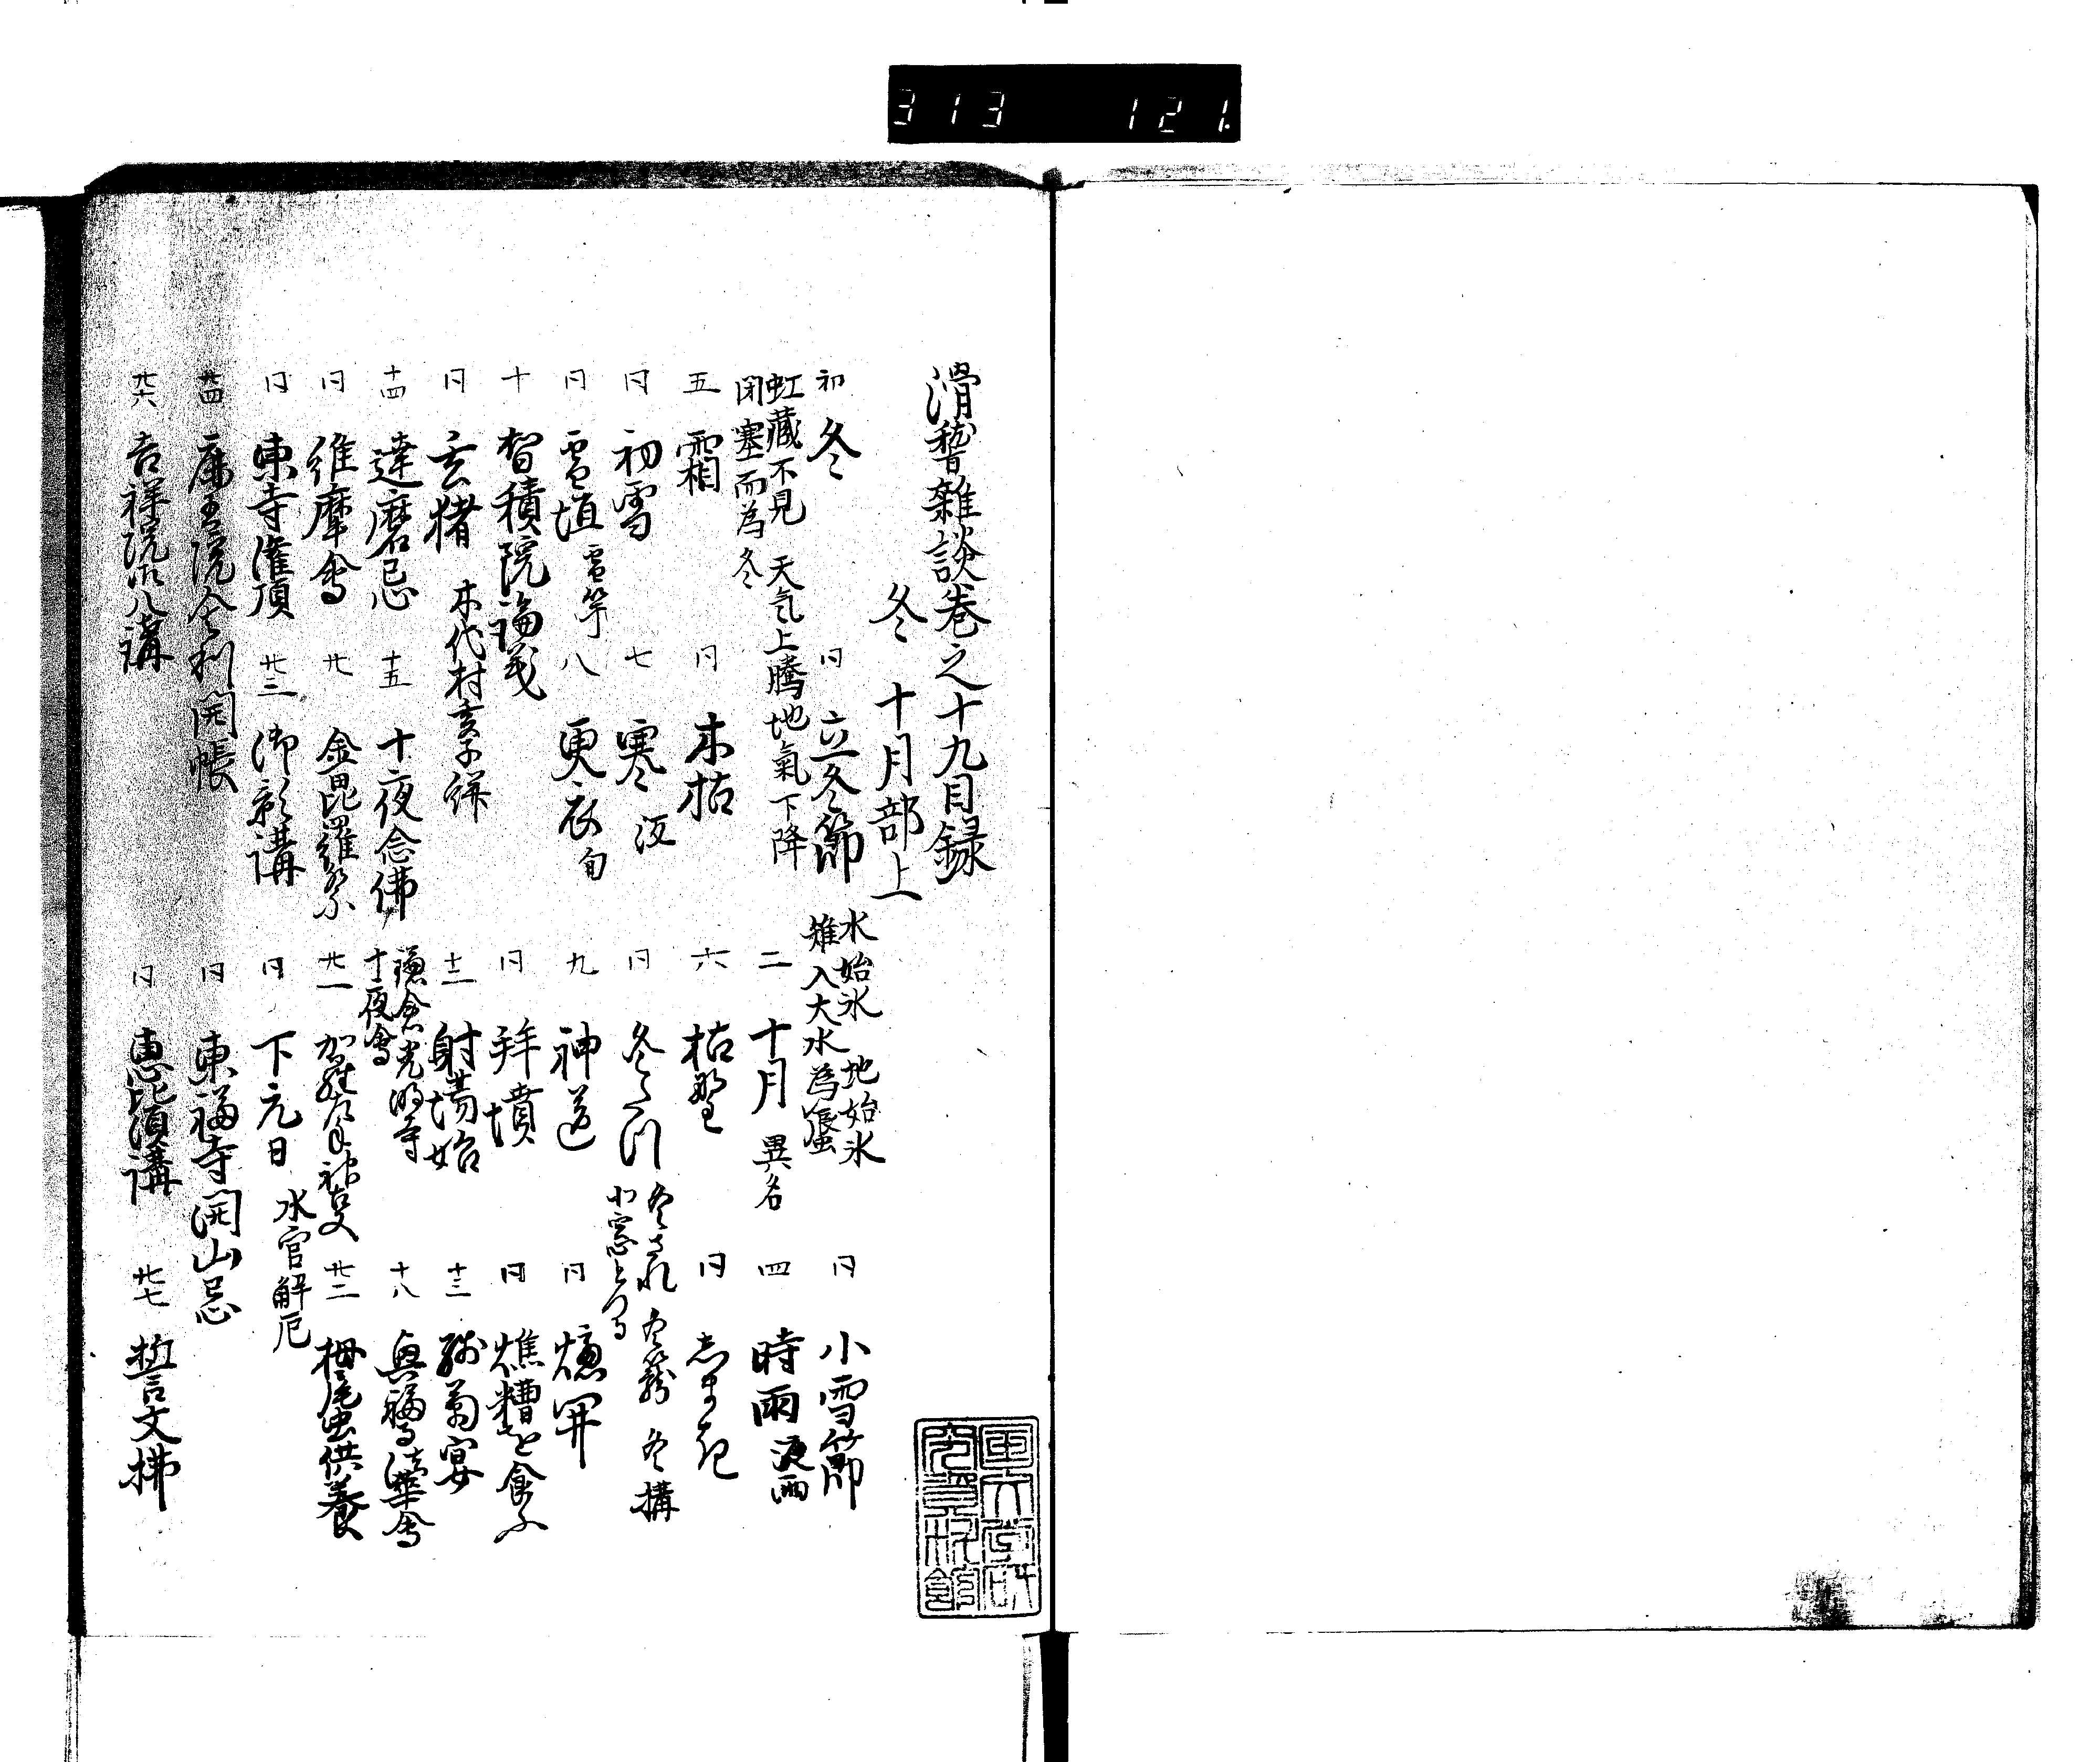 313 121.
滑稽雑談巻之十九目録
冬 十月部上
初 冬 同 立冬節 水始氷 地始氷 雉入大水為蜃 同 小雪節
虹藏不見 天気上騰地氣下降 閉塞而為冬 二 十月 異名 四 時雨 液雨
五 霜 同 木枯 六 枯野 同
同 初雪 七 寒 冱 同 冬 冬されれ 冬籠 冬搆
同 雪垣 雪竿 八 更衣 旬 九 神 同 爐開
十 智積院論義 同 拜墳 同 焦糟を食ふ
同 玄猪 木代村亥子餅 十二 射場始 十三 残菊宴
十四 達磨忌 十五 十夜念佛 鎌倉光明寺 十夜會 十八 興福寺法華會
同 維摩會 廿 金毘羅祭 廿一 廿二 栂尾虫供養
同 東寺潅頂 廿三 御影講 同 下元日 水官解厄
廿四 鹿王院舎利開帳 同 東福寺開山忌
廿六 吉祥院八講 同 恵比須講 廿七 誓文拂